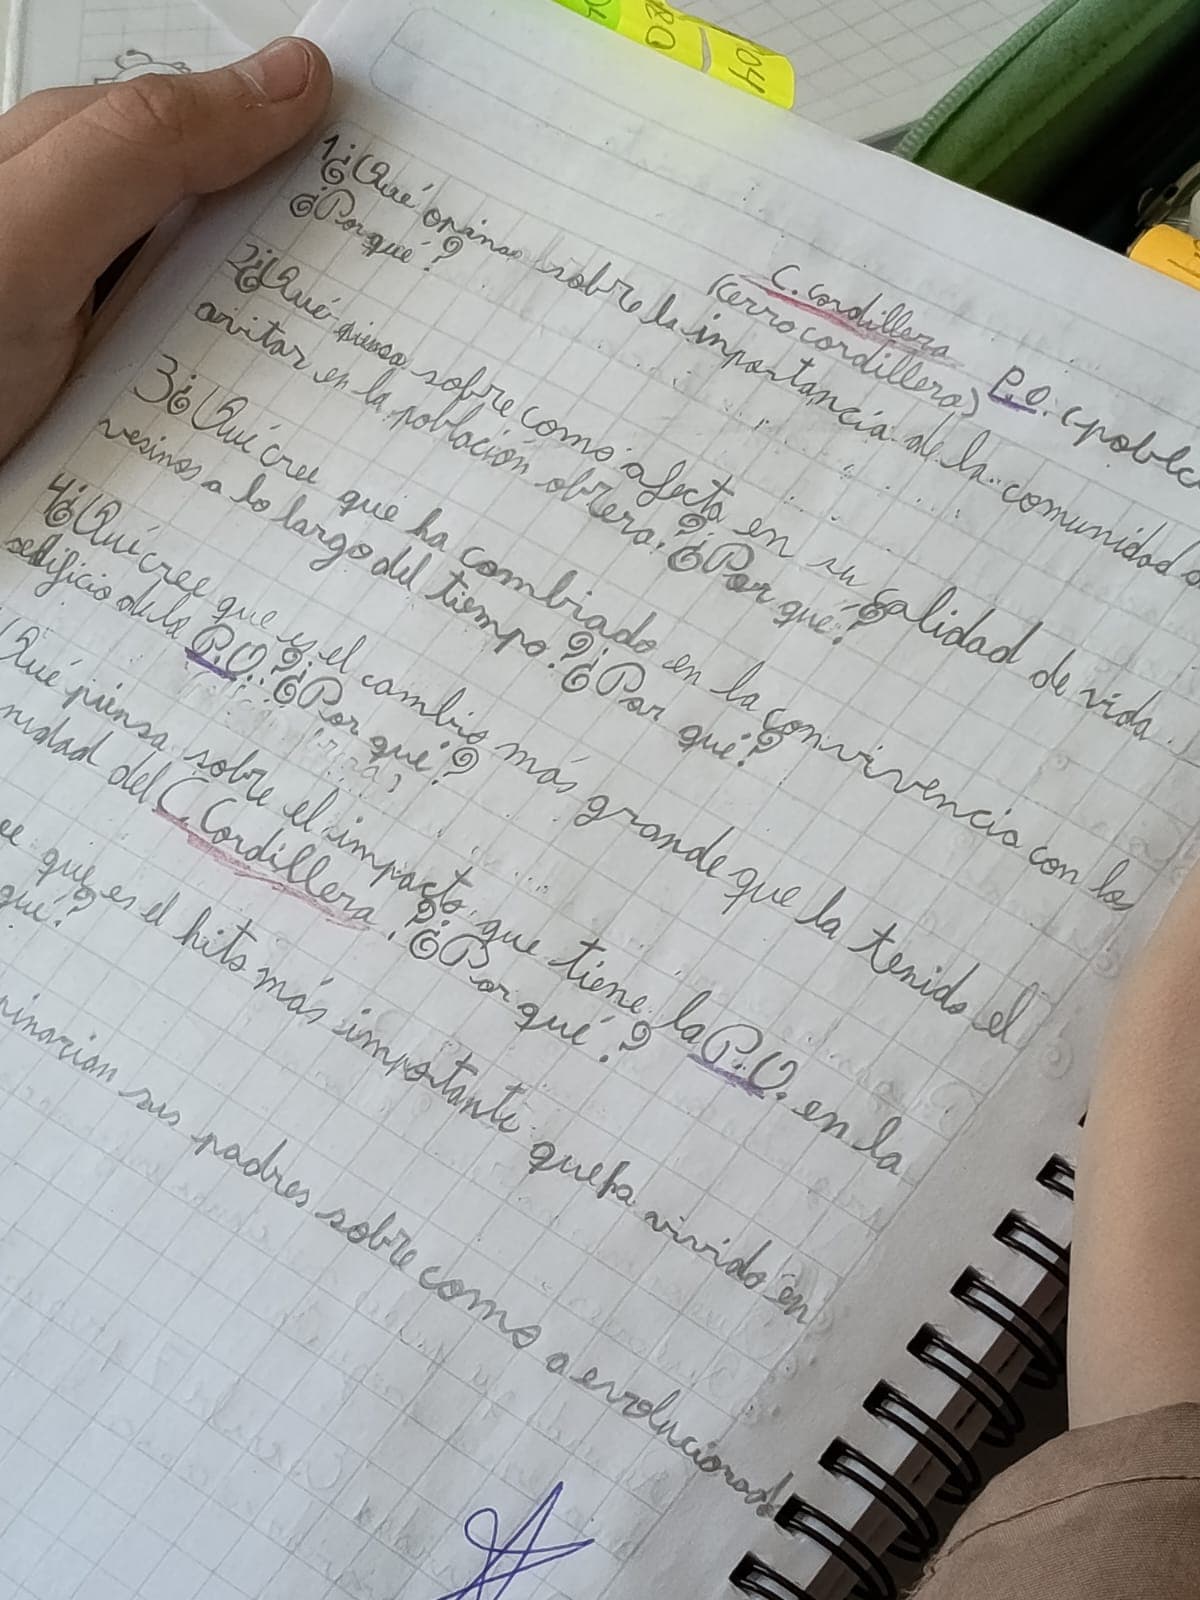 C. cordillera
(cerro cordillera) P.O. (pobla
1¿Qué opinas sobre la inportancia de la comunidad
¿Por qué?
2¿Qué piensa sobre como afecta en su calidad de vida
avitar en la población obrera.? ¿Por qué?
3¿Qué cree que ha combiado en la convivencia con los
vesinos a lo largo del tiempo.? ¿Por qué?
4¿Qué cree que es el cambio más grande que la tenido el
edificio de la P.O.? ¿Por qué?
¿Qué piensa sobre el impacto que tiene la P.O. en la
nidad del C. Cordillera.? ¿Por qué?
ee que es el hito más importante que ha vivido en
qué?
pinarian sus padres sobre como a evolucionado